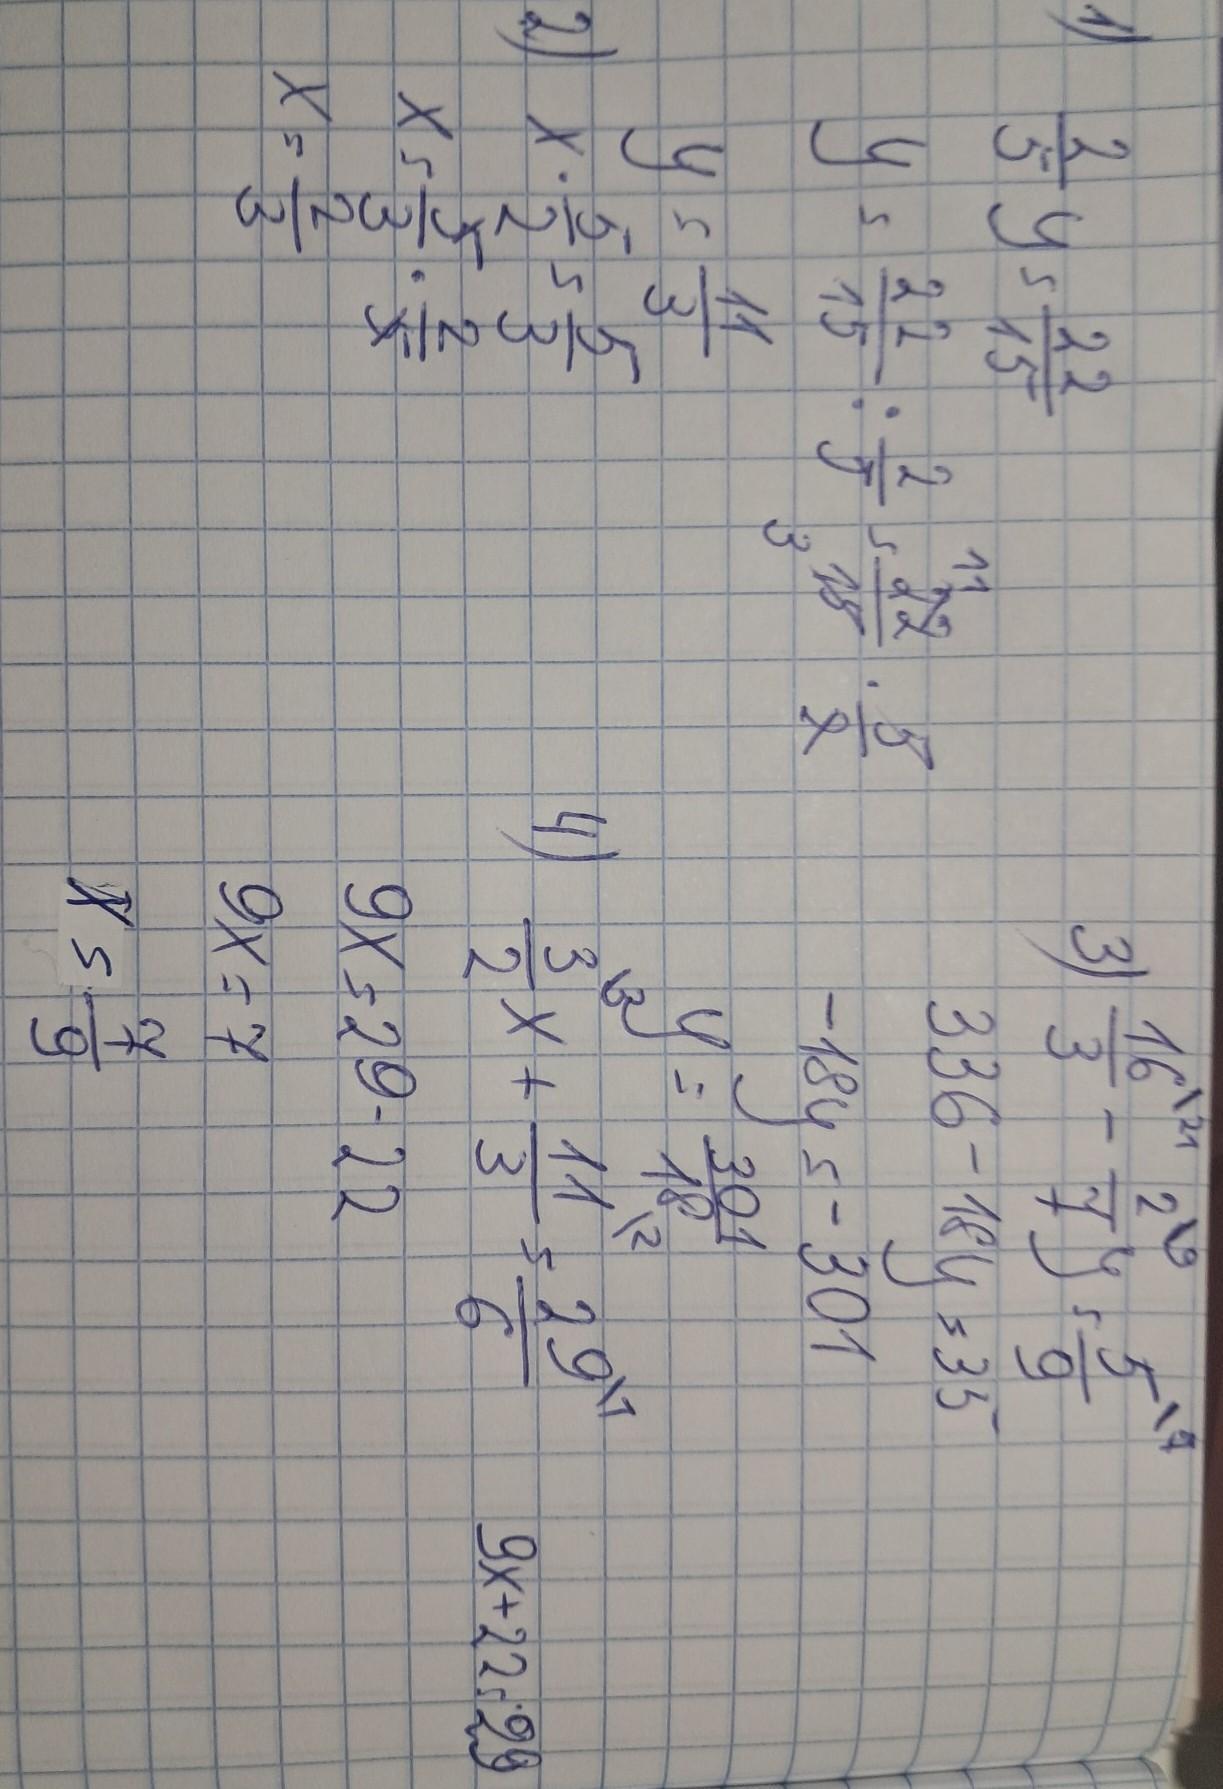 1) 2/5 y = 22/15
y = 22/15 : 2/5 = 22/15 · 5/2
11
3
y = 11/3
2) x · 5/2 = 5/3
x = 5/3 · 2/5
x = 2/3
3) 16/3 \21 - 2/7 \9 y = 5/9 \7
336 - 18y = 35
-18y = -301
y = 301/18
4) 3/2 \3 x + 11/3 \2 = 29/6 \1
9x + 22 = 29
9x = 29 - 22
9x = 7
x = 7/9